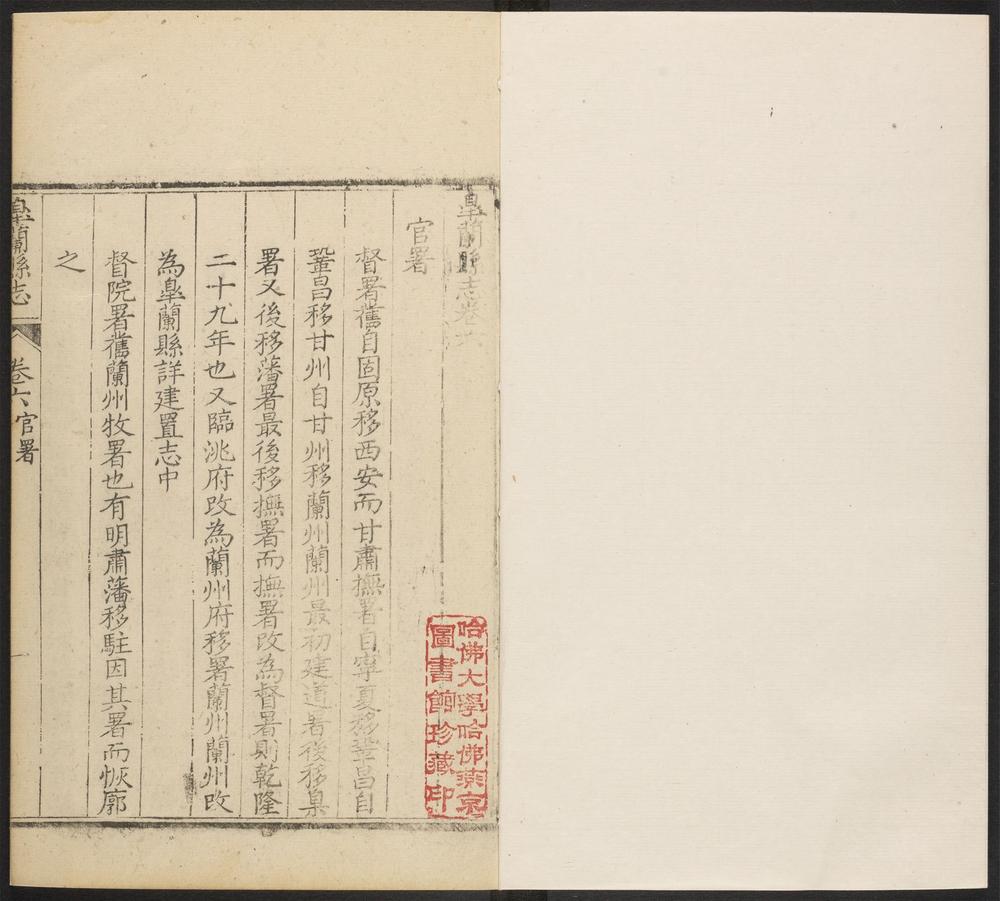 皐蘭縣志卷六
官署
督署舊自固原移西安而甘肅撫署自寧夏移鞏昌自
鞏昌移甘州自甘州移蘭州蘭州最初建道署後移臬
署又後移藩署最後移撫署而撫署改為督署則乾隆
二十九年也又臨洮府改為蘭州府移署蘭州蘭州改
為皐蘭縣詳建置志中
督院署舊蘭州牧署也有明肅藩移駐因其署而恢廓
之
皐蘭縣志
卷六官署
一
哈佛大學哈佛燕京
圖書館珍藏印